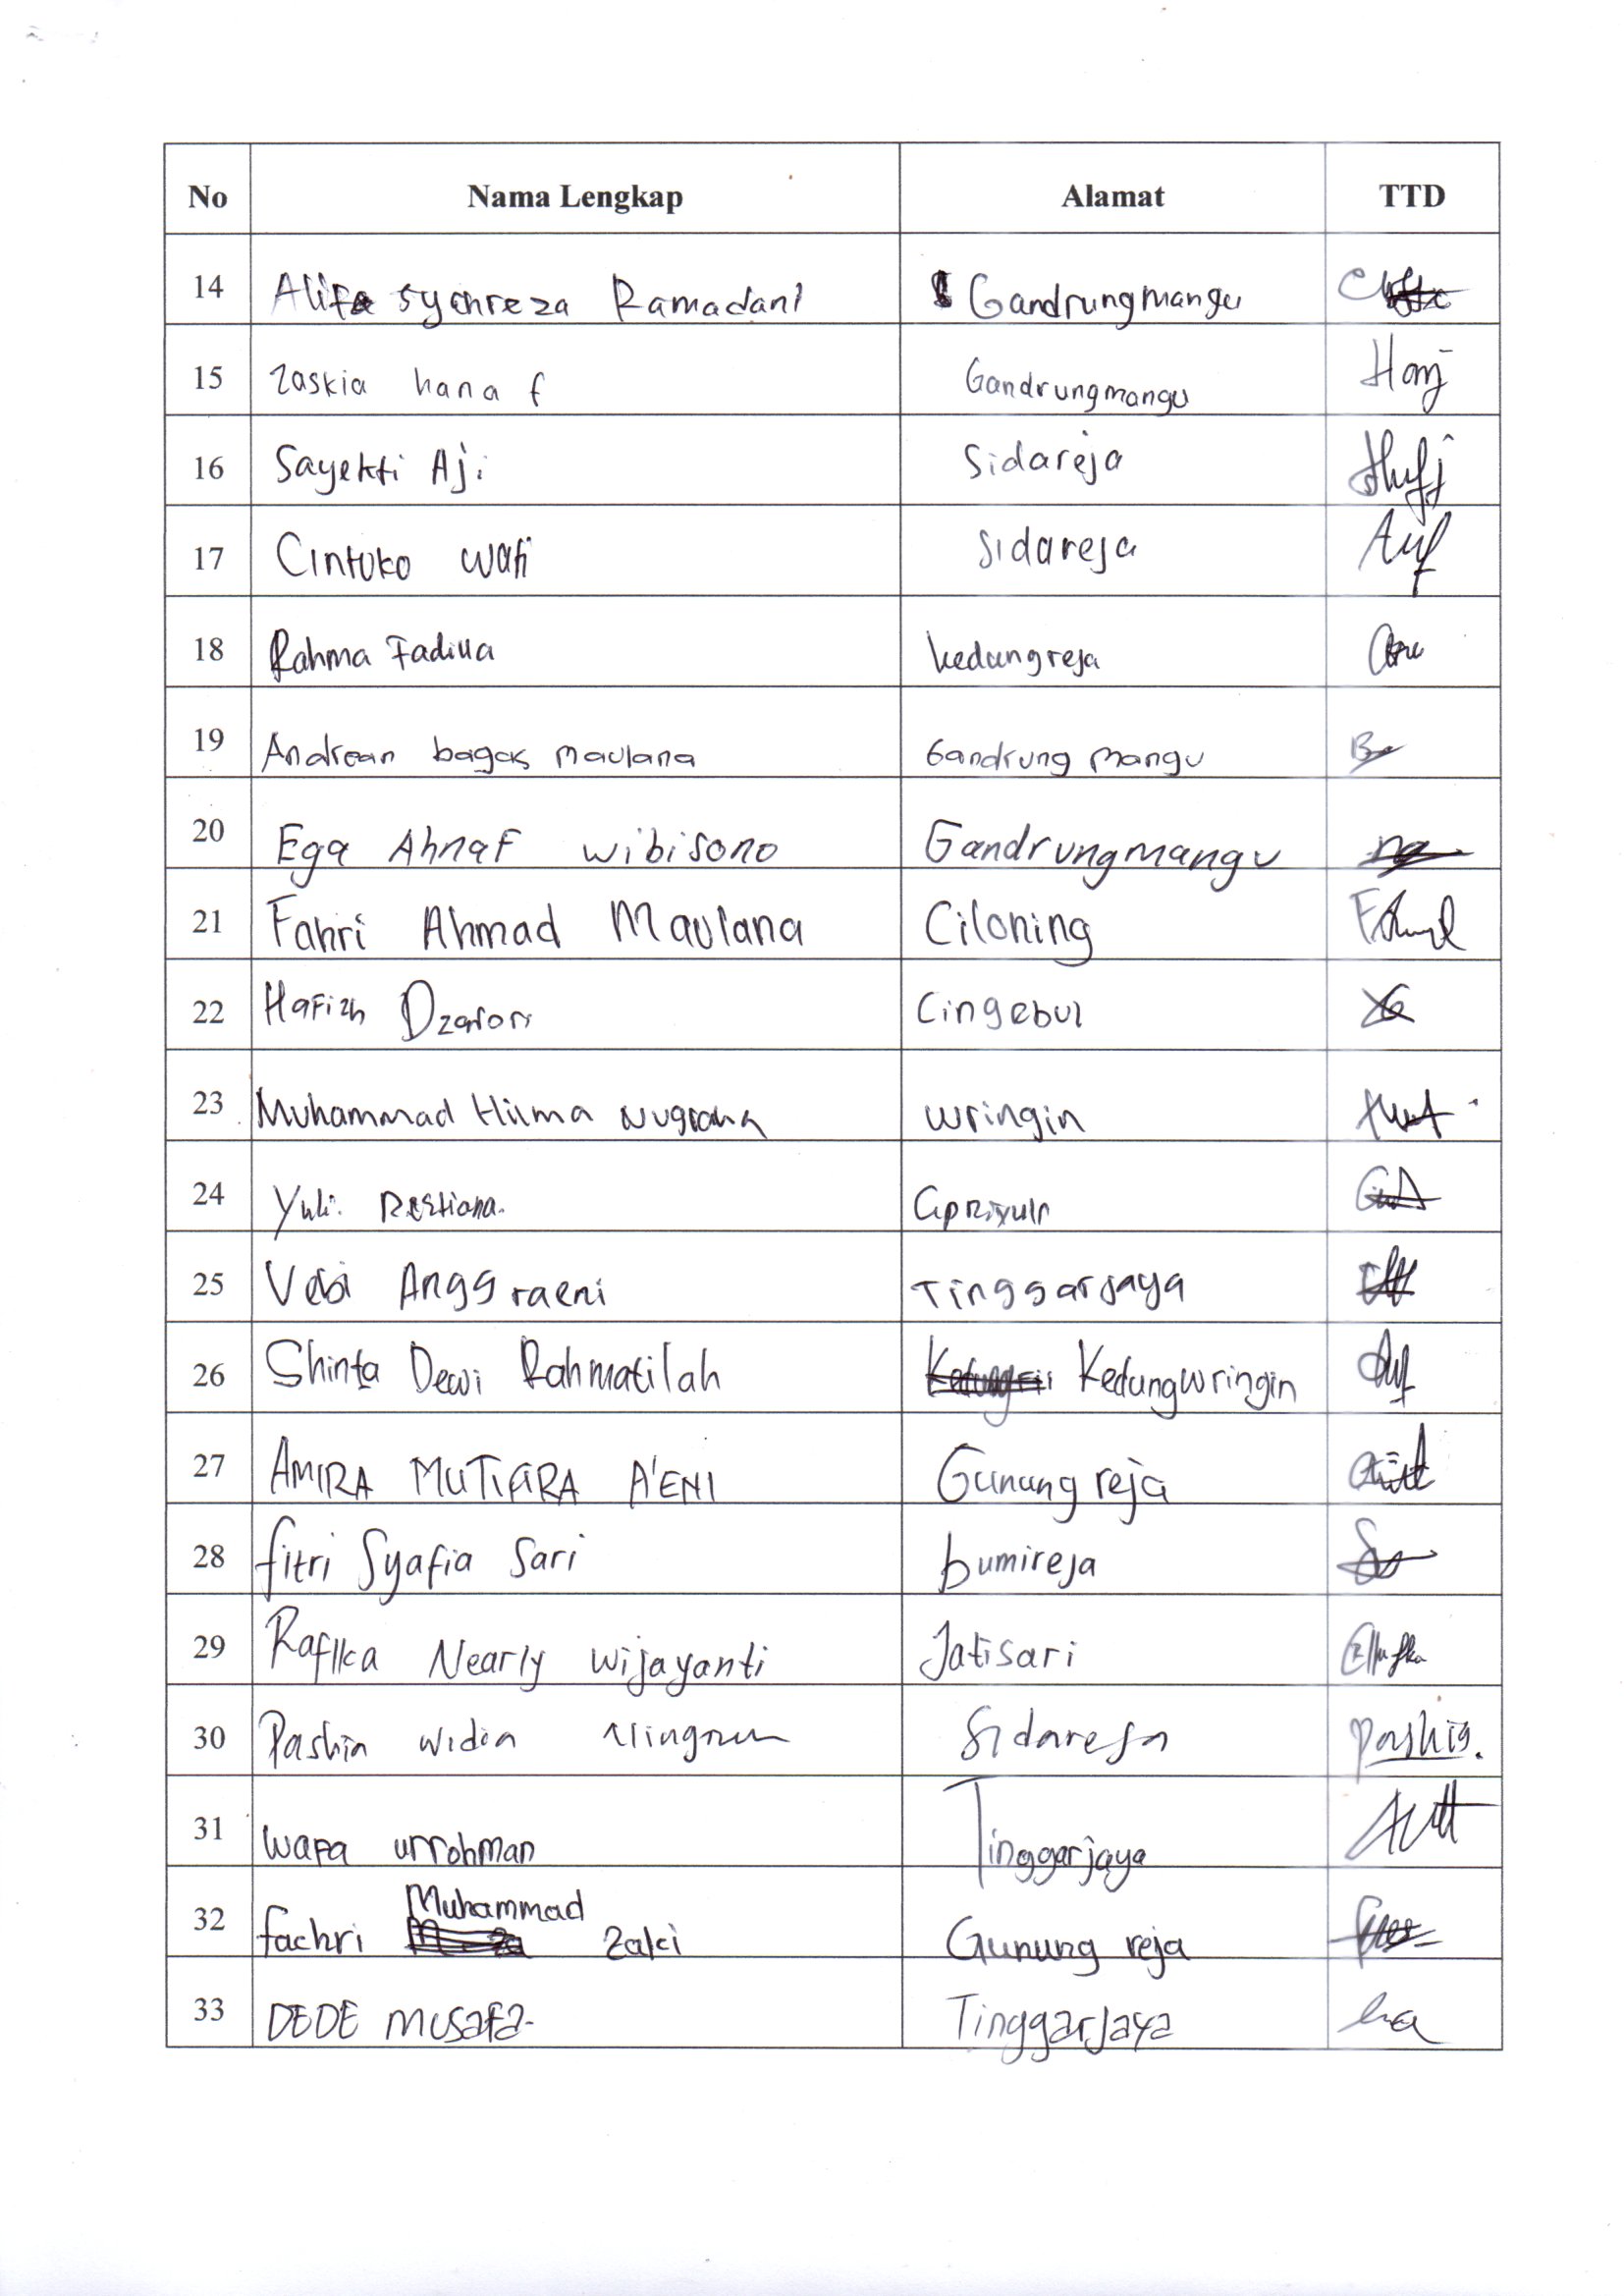 No Nama Lengkap Alamat TTD
14 Alifa syahreza Ramadani Gandrungmangu
15 Zaskia hana f Gandrungmangu Hanj
16 Sayekti Aji Sidareja
17 Cintoko wati Sidareja
18 Rahma Fadilla kedungreja
19 Andrean bagas maulana Gandrung mangu
20 Ega Ahnaf wibisono Gandrungmangu
21 Fahri Ahmad Maulana Ciloning
22 Hafizh Cingebul
23 Muhammad Hilma Nugraha wringin
24 Yuli Restiana
25 Vebi Anggraeni Tinggarjaya
26 Shinta Dewi Rahmatilah Kedungwringin
27 AMIRA MUTIARA A'ENI Gunung reja
28 fitri Syafia Sari bumireja
29 Rafika Nearly wijayanti Jatisari
30 Pashia widia Sidareja Pashia.
31 wafa urrohman Tinggarjaya
32 fachri Muhammad Zaki Gunung reja
33 DEDE musafa Tinggarjaya